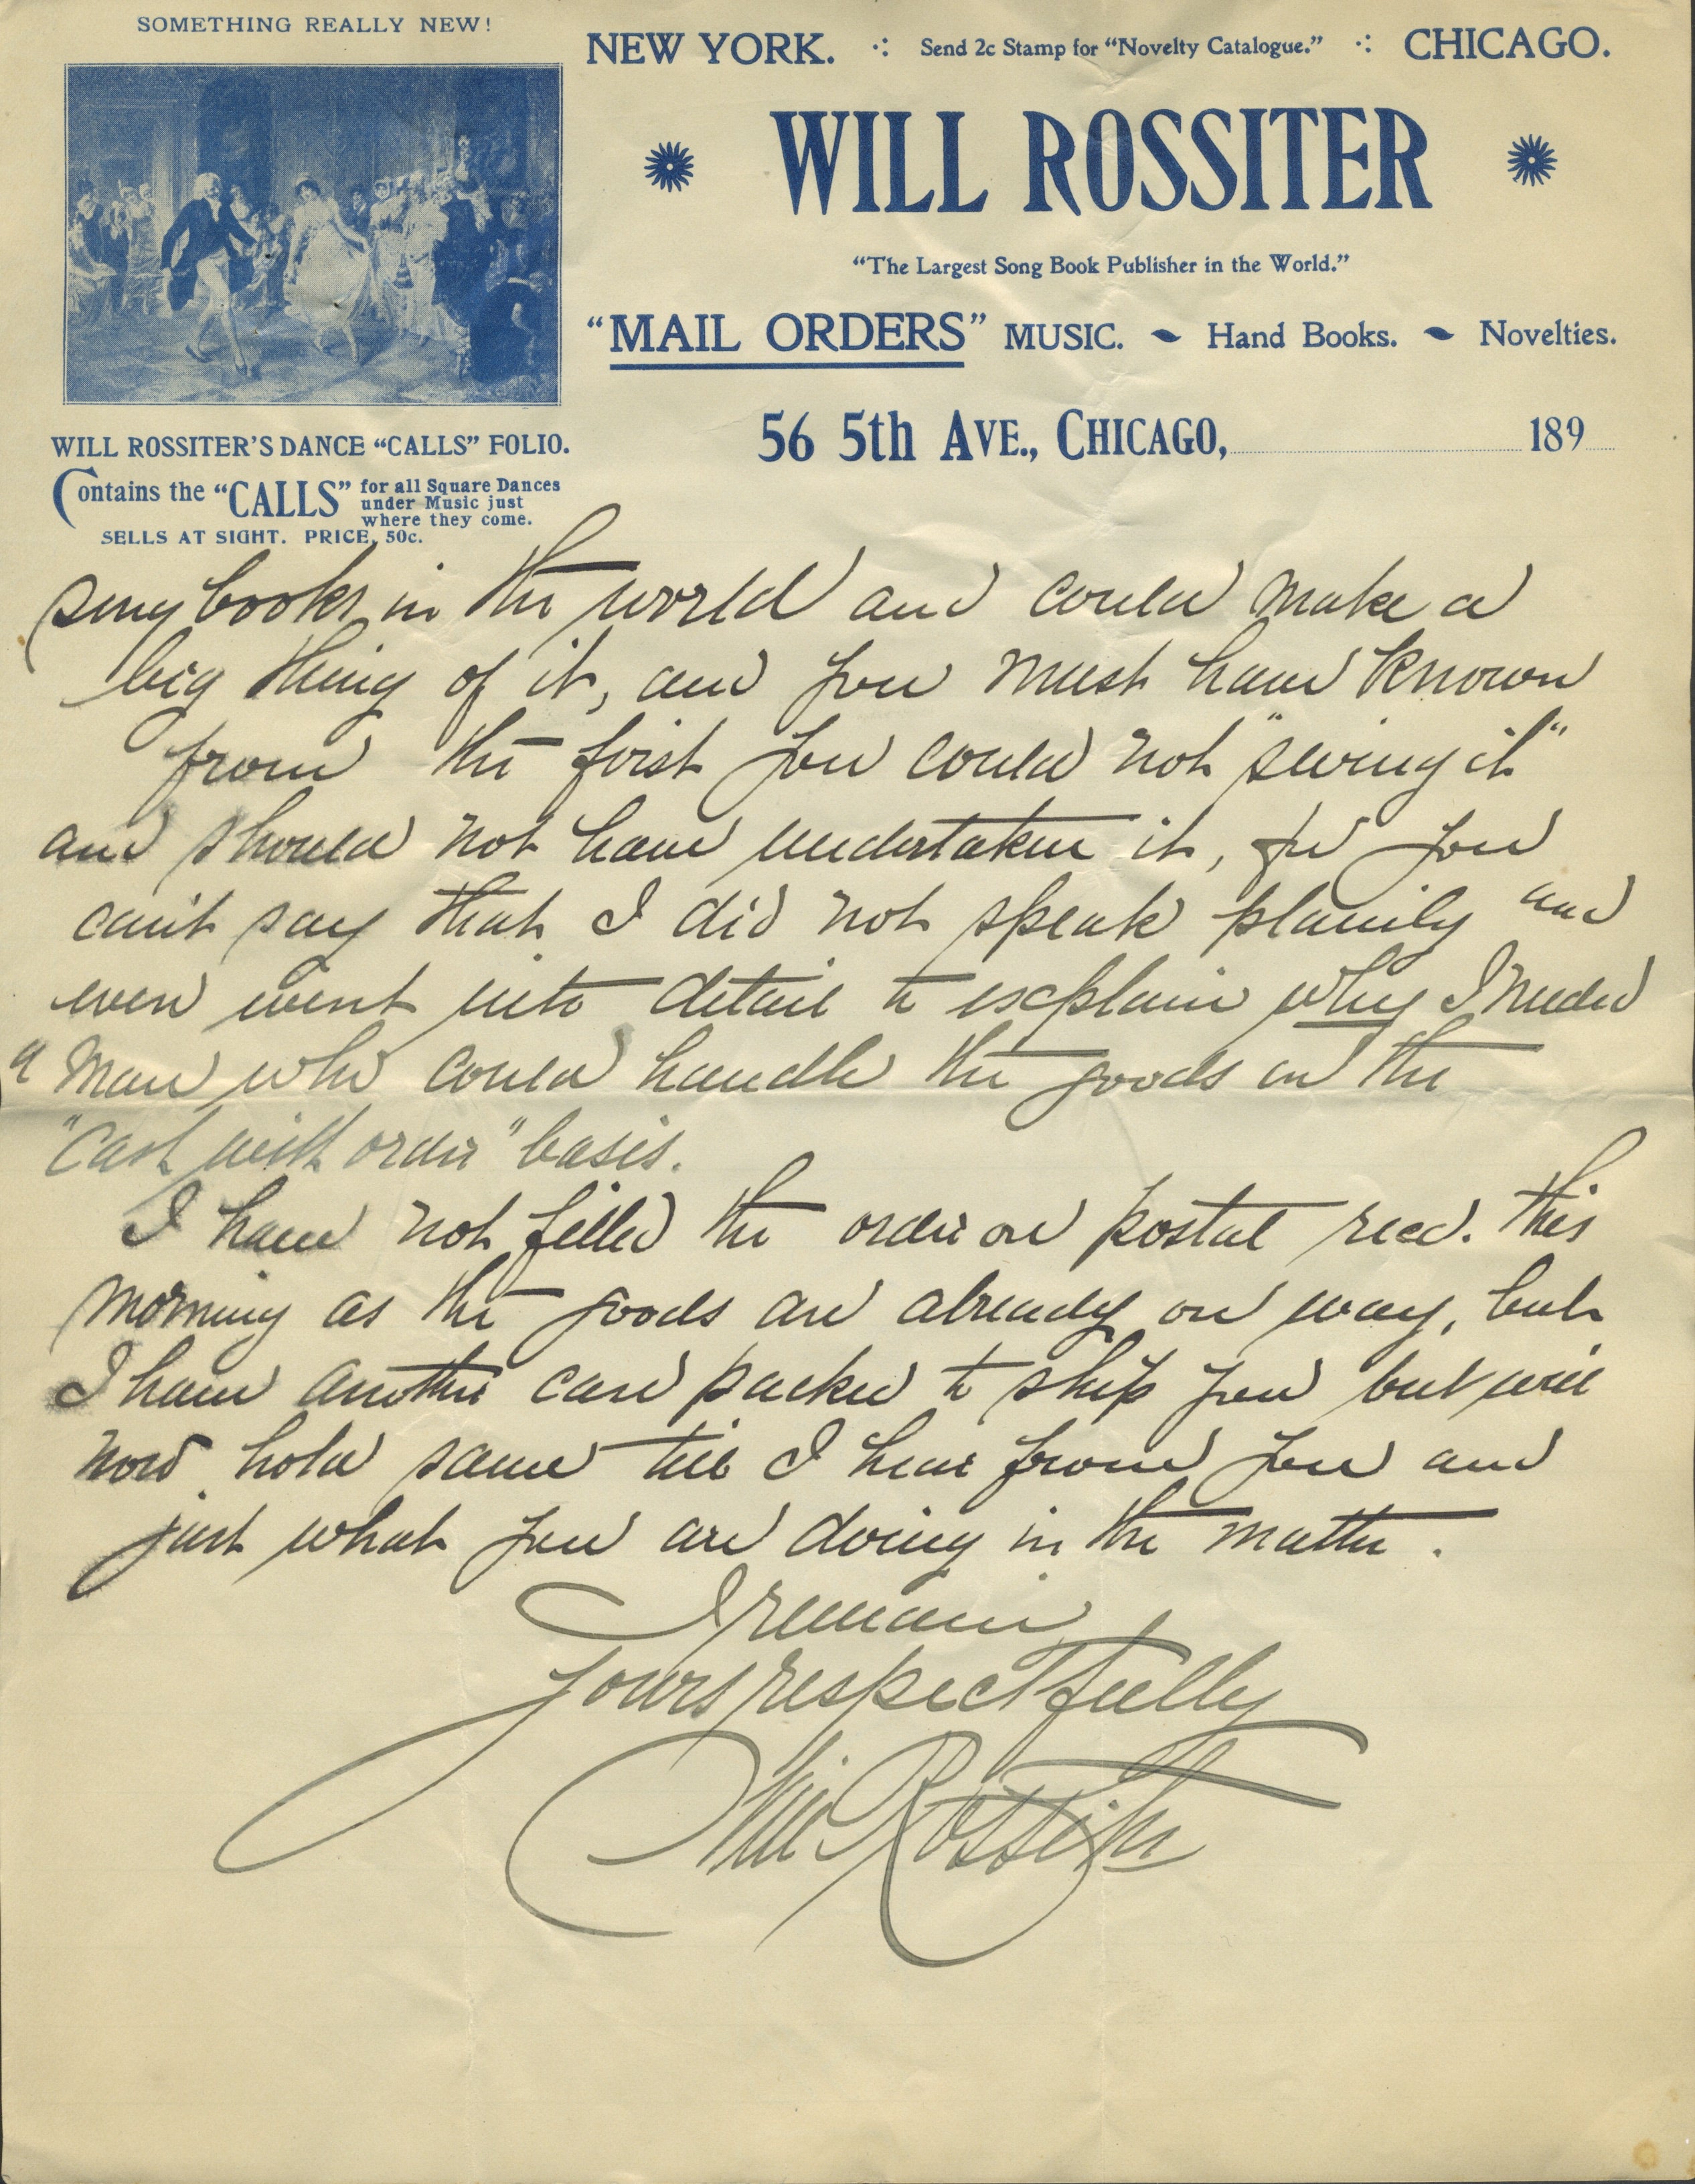 SOMETHING REALLY NEW!
NEW YORK. Send 2c Stamp for "Novelty Catalogue." CHICAGO.
WILL ROSSITER
"The Largest Song Book Publisher in the World."
"MAIL ORDERS" MUSIC. Hand Books. Novelties.
56 5th AVE., CHICAGO, 189
WILL ROSSITER'S DANCE "CALLS" FOLIO.
Contains the "CALLS" for all Square Dances
under Music just
where they come.
SELLS AT SIGHT. PRICE, 50c.
song books in the world and could make a
big thing of it, and you must have known
from the first you could not "swing it"
and should not have undertaken it, for you
can't say that I did not speak plainly and
even went into detail to explain why I needed
a man who could handle the goods on the
"Cash with order" basis.
I have not filled the order on postal recd. this
morning as the goods are already on way, but
I have another case packed to ship you but will
now hold same till I hear from you and
just what you are doing in the matter.
I remain
yours respectfully
Will Rossiter